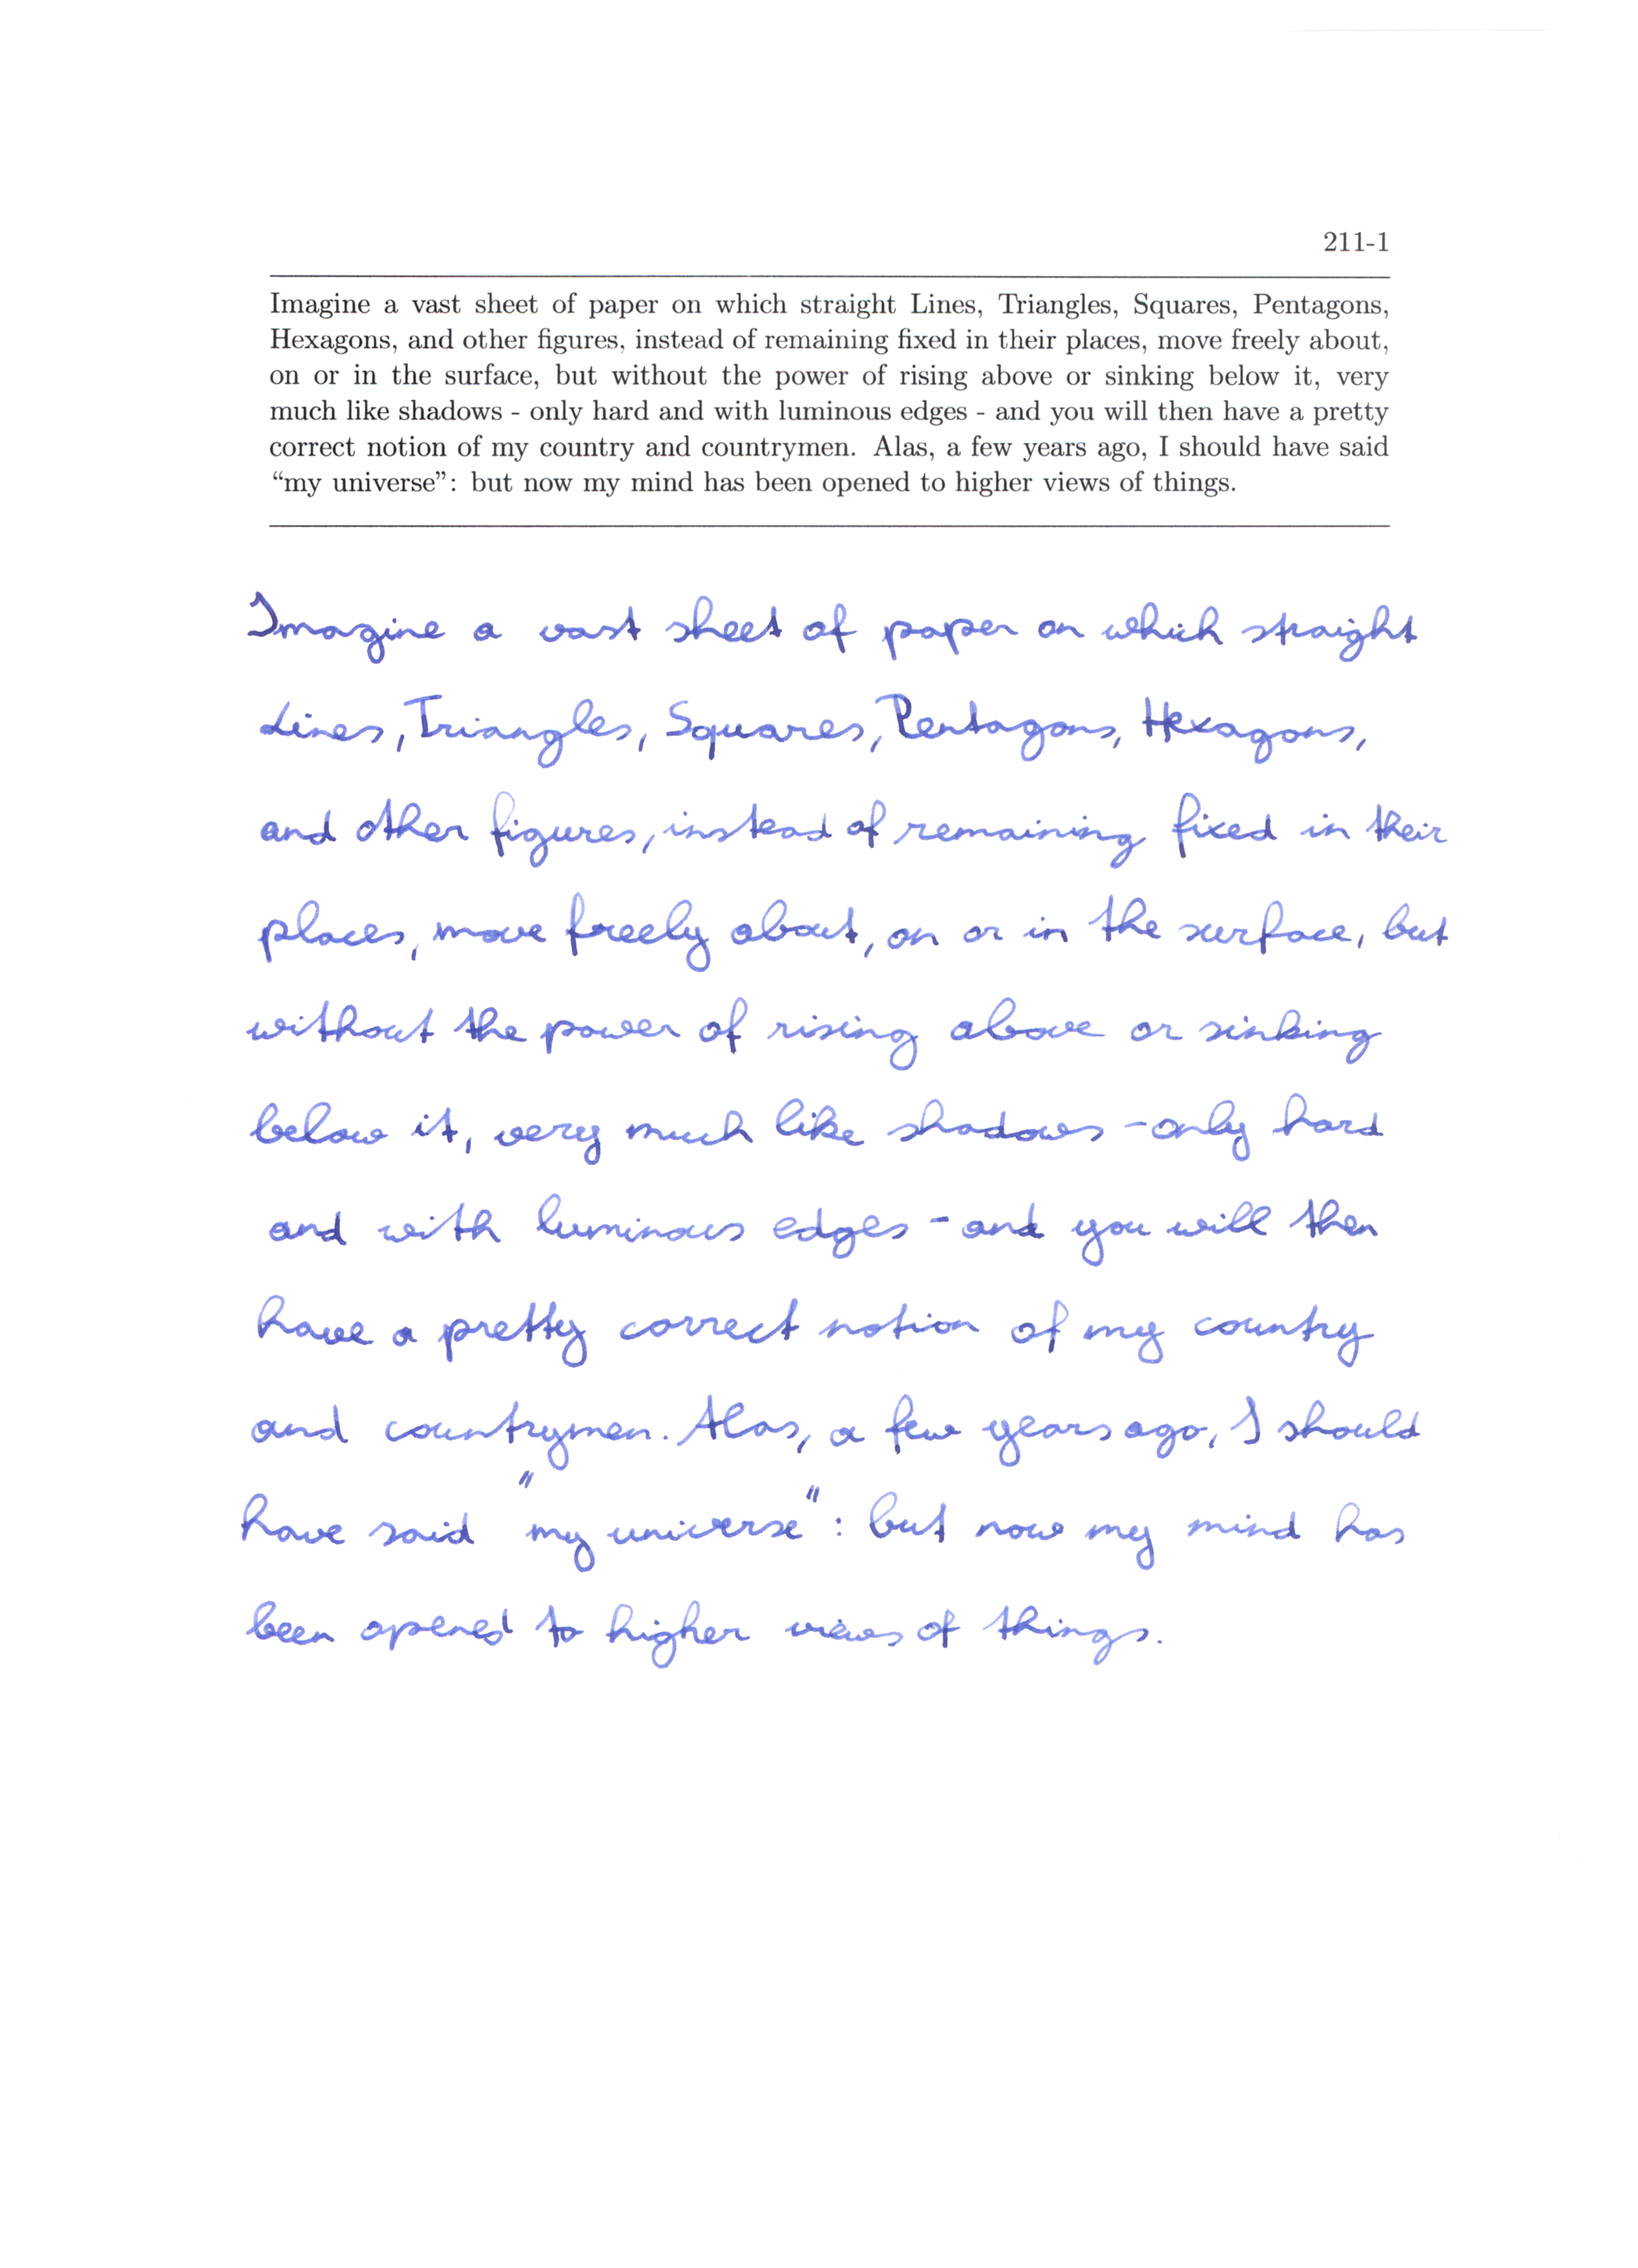 211-1
Imagine a vast sheet of paper on which straight Lines, Triangles, Squares, Pentagons,
Hexagons, and other figures, instead of remaining fixed in their places, move freely about,
on or in the surface, but without the power of rising above or sinking below it, very
much like shadows - only hard and with luminous edges - and you will then have a pretty
correct notion of my country and countrymen. Alas, a few years ago, I should have said
“my universe”: but now my mind has been opened to higher views of things.
Imagine a vast sheet of paper on which straight
Lines, Triangles, Squares, Pentagons, Hexagons,
and other figures, instead of remaining fixed in their
places, move freely about, on or in the surface, but
without the power of rising above or sinking
below it, very much like shadows - only hard
and with luminous edges - and you will then
have a pretty correct notion of my country
and countrymen. Alas, a few years ago, I should
have said "my universe": but now my mind has
been opened to higher views of things.